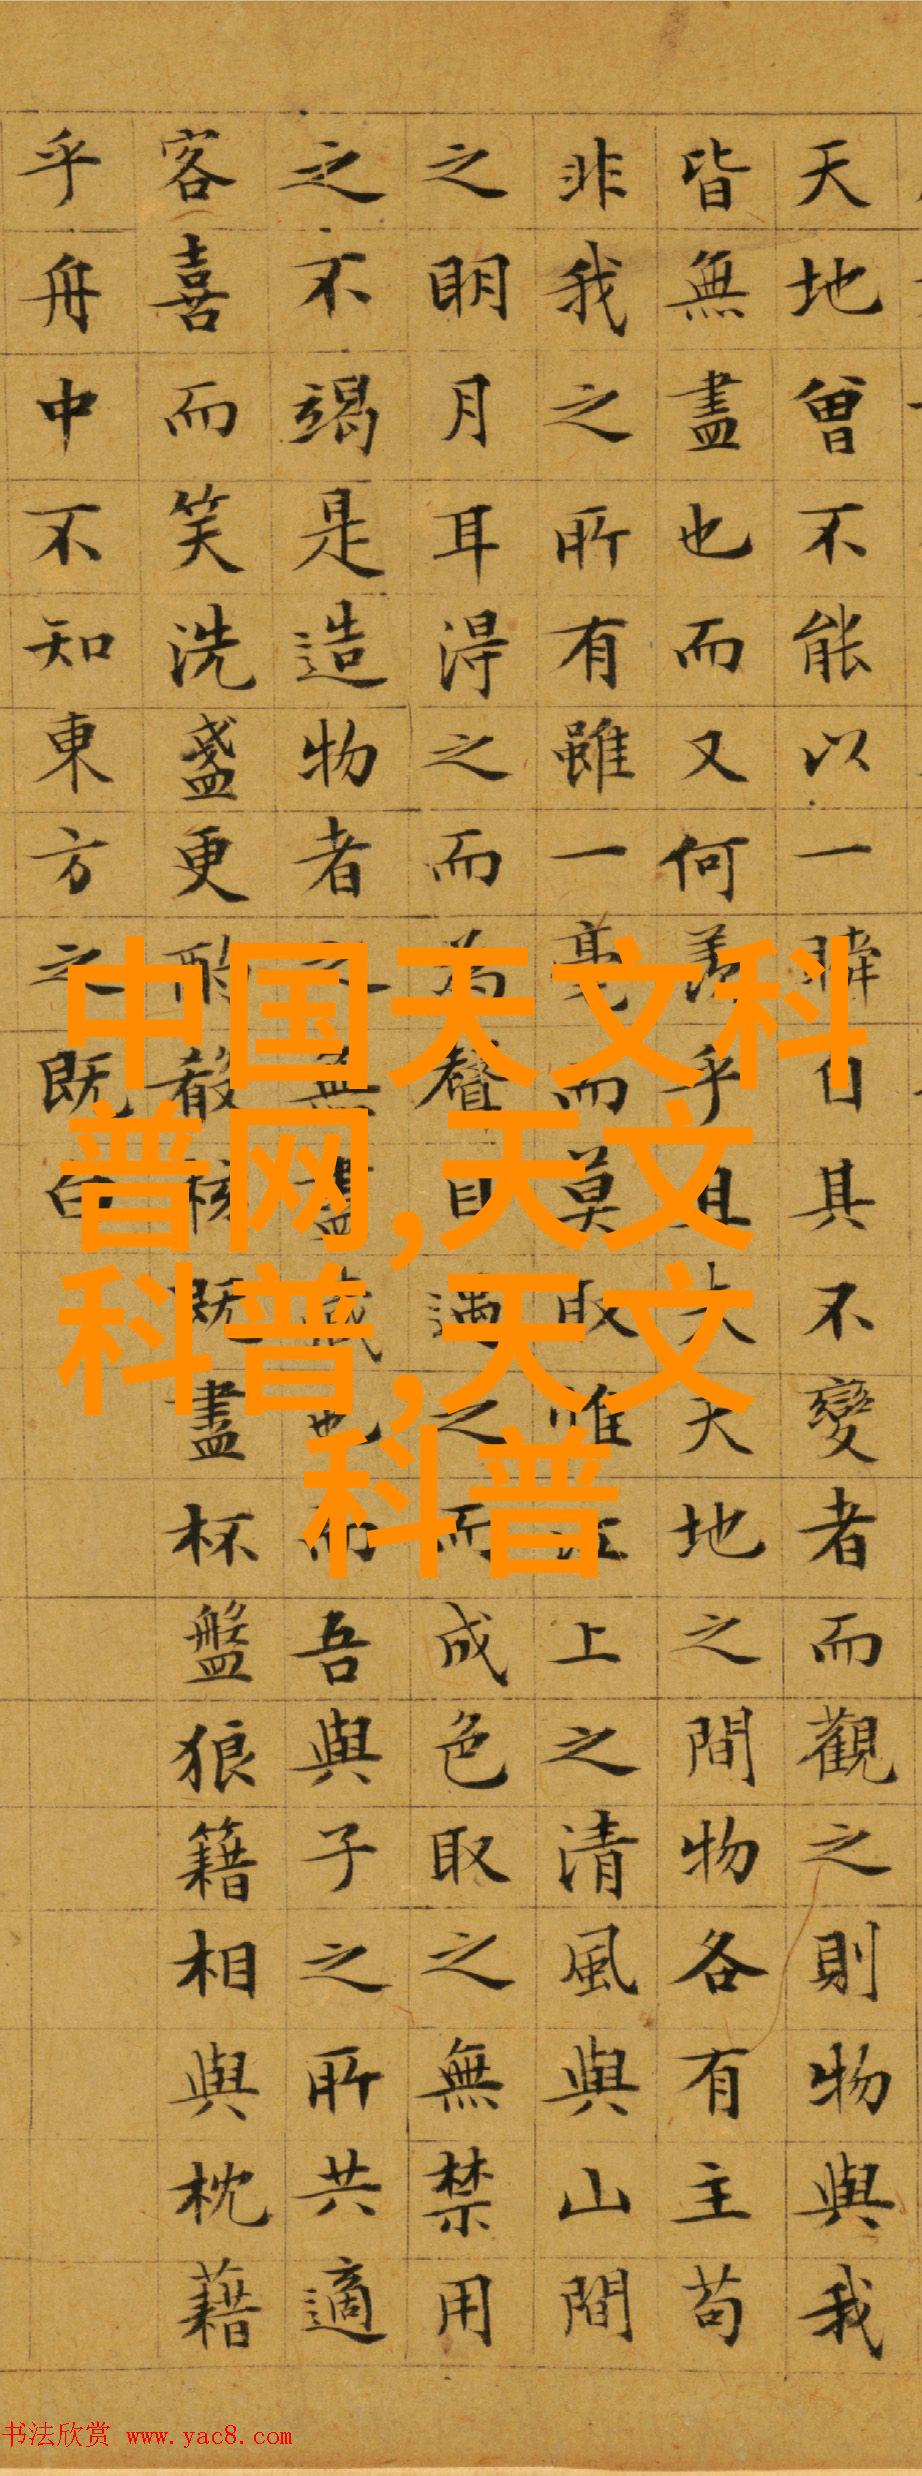 天地曾不能以一瞬自其不變者而觀之則物與我
皆無盡也而又何羨乎且夫天地之間物各有主苟
非我之所有雖一毫而莫取惟江上之清風與山間
之明月耳得之而為聲目遇之而成色取之無禁用
之不竭是造物者之無盡藏也而吾與子之所共適
客喜而笑洗盞更酌殽核既盡杯盤狼籍相與枕藉
乎舟中不知東方之既白
中国天文科
普网,天文
科普,天文
科普
书法欣赏 www.yac8.com